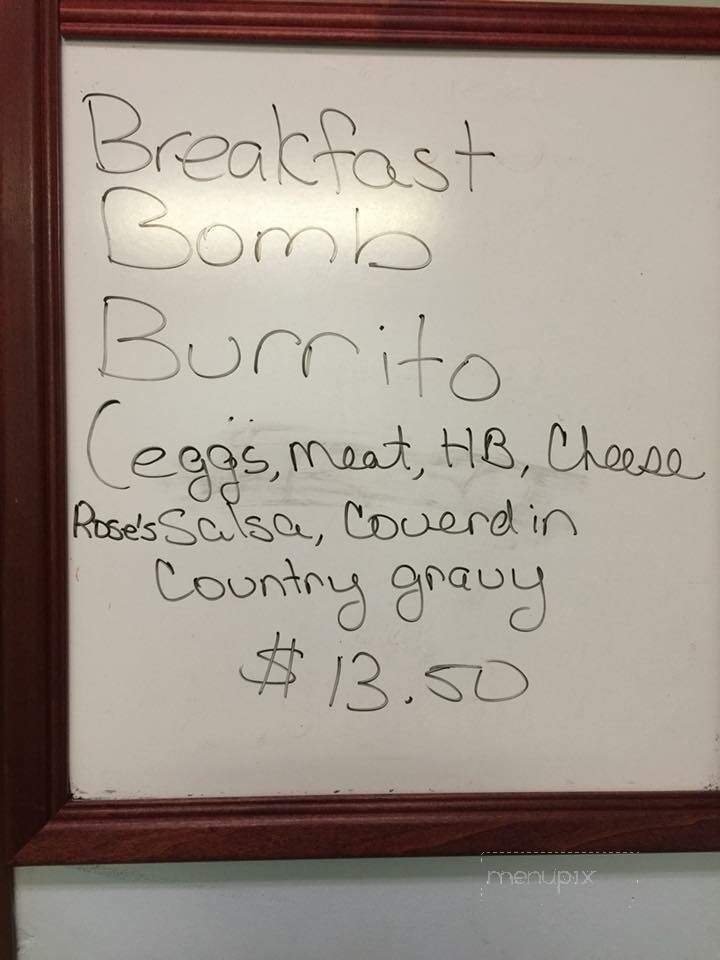 Breakfast
Bomb
Burrito
(eggs, meat, HB, Cheese
Rose's Salsa, Coverd in
Country gravy
$13.50
menupix